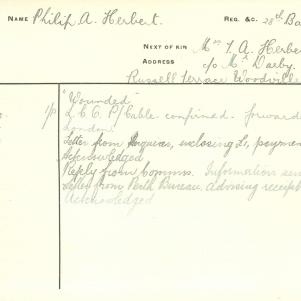 NAME Philip A. Herbert. REG. &C. 28th Ba
NEXT OF KIN Mrs T. A. Herbe
ADDRESS c/o Mr Darby.
Russell Terrace Woodville
"Wounded"
1/p L.C.C. P/Cable confirmed. forwarde
London
Letter from Enquirer, enclosing £1, paymen
Acknowledged
Reply from Comms. Information sen
Letter from Perth Bureau. advising receipt
Acknowledged